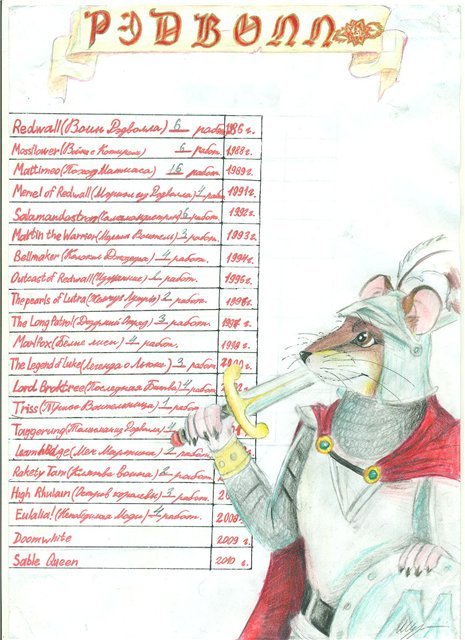 РЭДВОЛЛ
Redwall (Воин Рэдволла) 6 работ. 1986 г.
Mossflower (Война с Котиром) 6 работ. 1988 г.
Mattimeo (Поход Матиаса) 16 работ. 1989 г.
Mariel of Redwall (Мэриэль из Рэдволла) 4 раб 1991 г.
Salamandastron (Саламандастрон) 6 работ. 1992 г.
Martin the Warrior (Мартин Воитель) 3 работ. 1993 г.
Bellmaker (Колокол Джозефа) 4 работ. 1994 г.
Outcast of Redwall (Изгнанник) работ. 1995 г.
The pearls of Lutra (Жемчуг Лутры) работ. 1996 г.
The Long Patrol (Дозорный Отряд) 3 работ. 19 г.
Marlfox (Белые лисы) 4 работ. 1998 г.
The Legend of Luke (Легенда о Льюке) 3 работ.
Lord Brocktree (Последняя Битва) 4 работ.
Triss (Трисс Воительница) 1 работ.
Taggerung (Таггерунг Рэдволла) работ.
(Меч Мартина) работ.
Rakety Tam (Клятва воина) работ.
High Rhulain (Остров королевы) работ. 20
Eulalia! (Непобедимая Моди) 4 работ. 200 г.
Doomwhite 2009 г.
Sable Queen 2010 г.
М